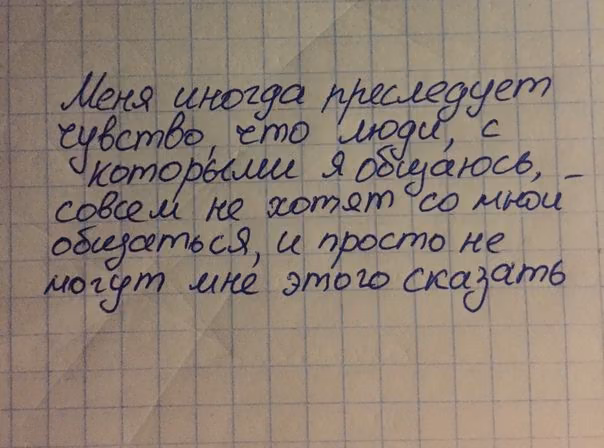 Меня иногда преследует
чувство, что люди, с
которыми я общаюсь, –
совсем не хотят со мной
общаться, и просто не
могут мне этого сказать